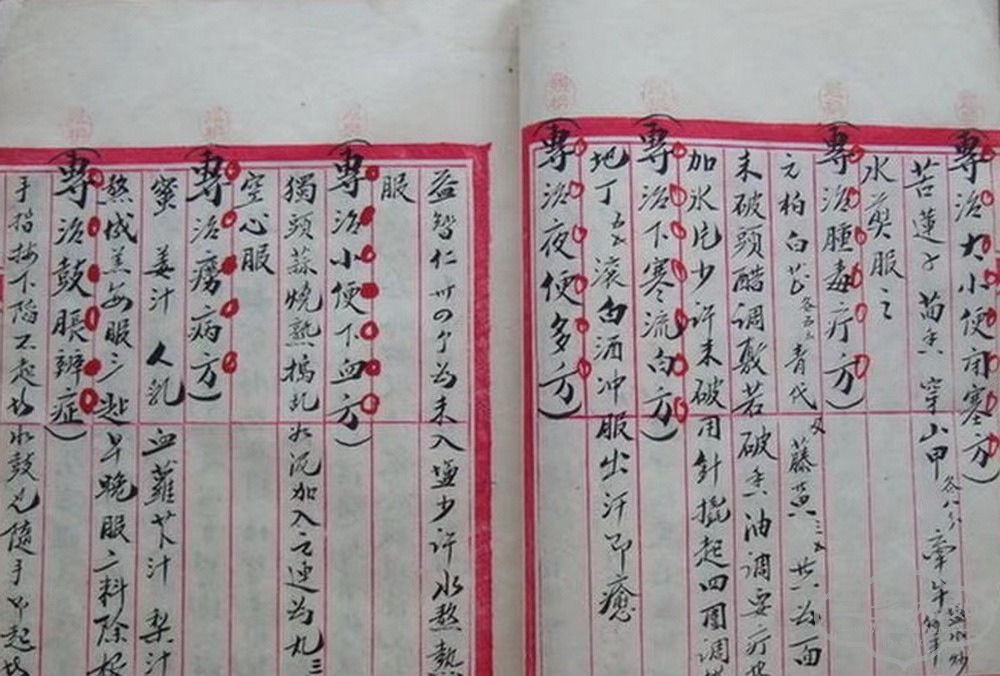 (專治大小便閉塞方)
苦蓮子 茴香 穿山甲各八分 牽牛
水煎服之
(專治腫毒疔方)
元柏白芷各五 青代 藤黃三 共為面
未破頭醋調敷若破香油調要疔
加氷片少許未破用針撓起四圍調
(專治下寒流白方)
地丁 滾白酒冲服出汗即癒
(專治夜便多方)
益智仁廿四个為末入塩少許水熬熱
服
(專治小便下血方)
獨頭蒜燒熟搗乱如泥加入元連為丸三
空心服
(專治癆病方)
蜜 姜汁 人乳 血 蘿卜汁 梨汁
熬成羔每服三匙早晚服二料除根
(專治鼓脹辨症)
手指按下陷不起為水鼓也隨手即起為